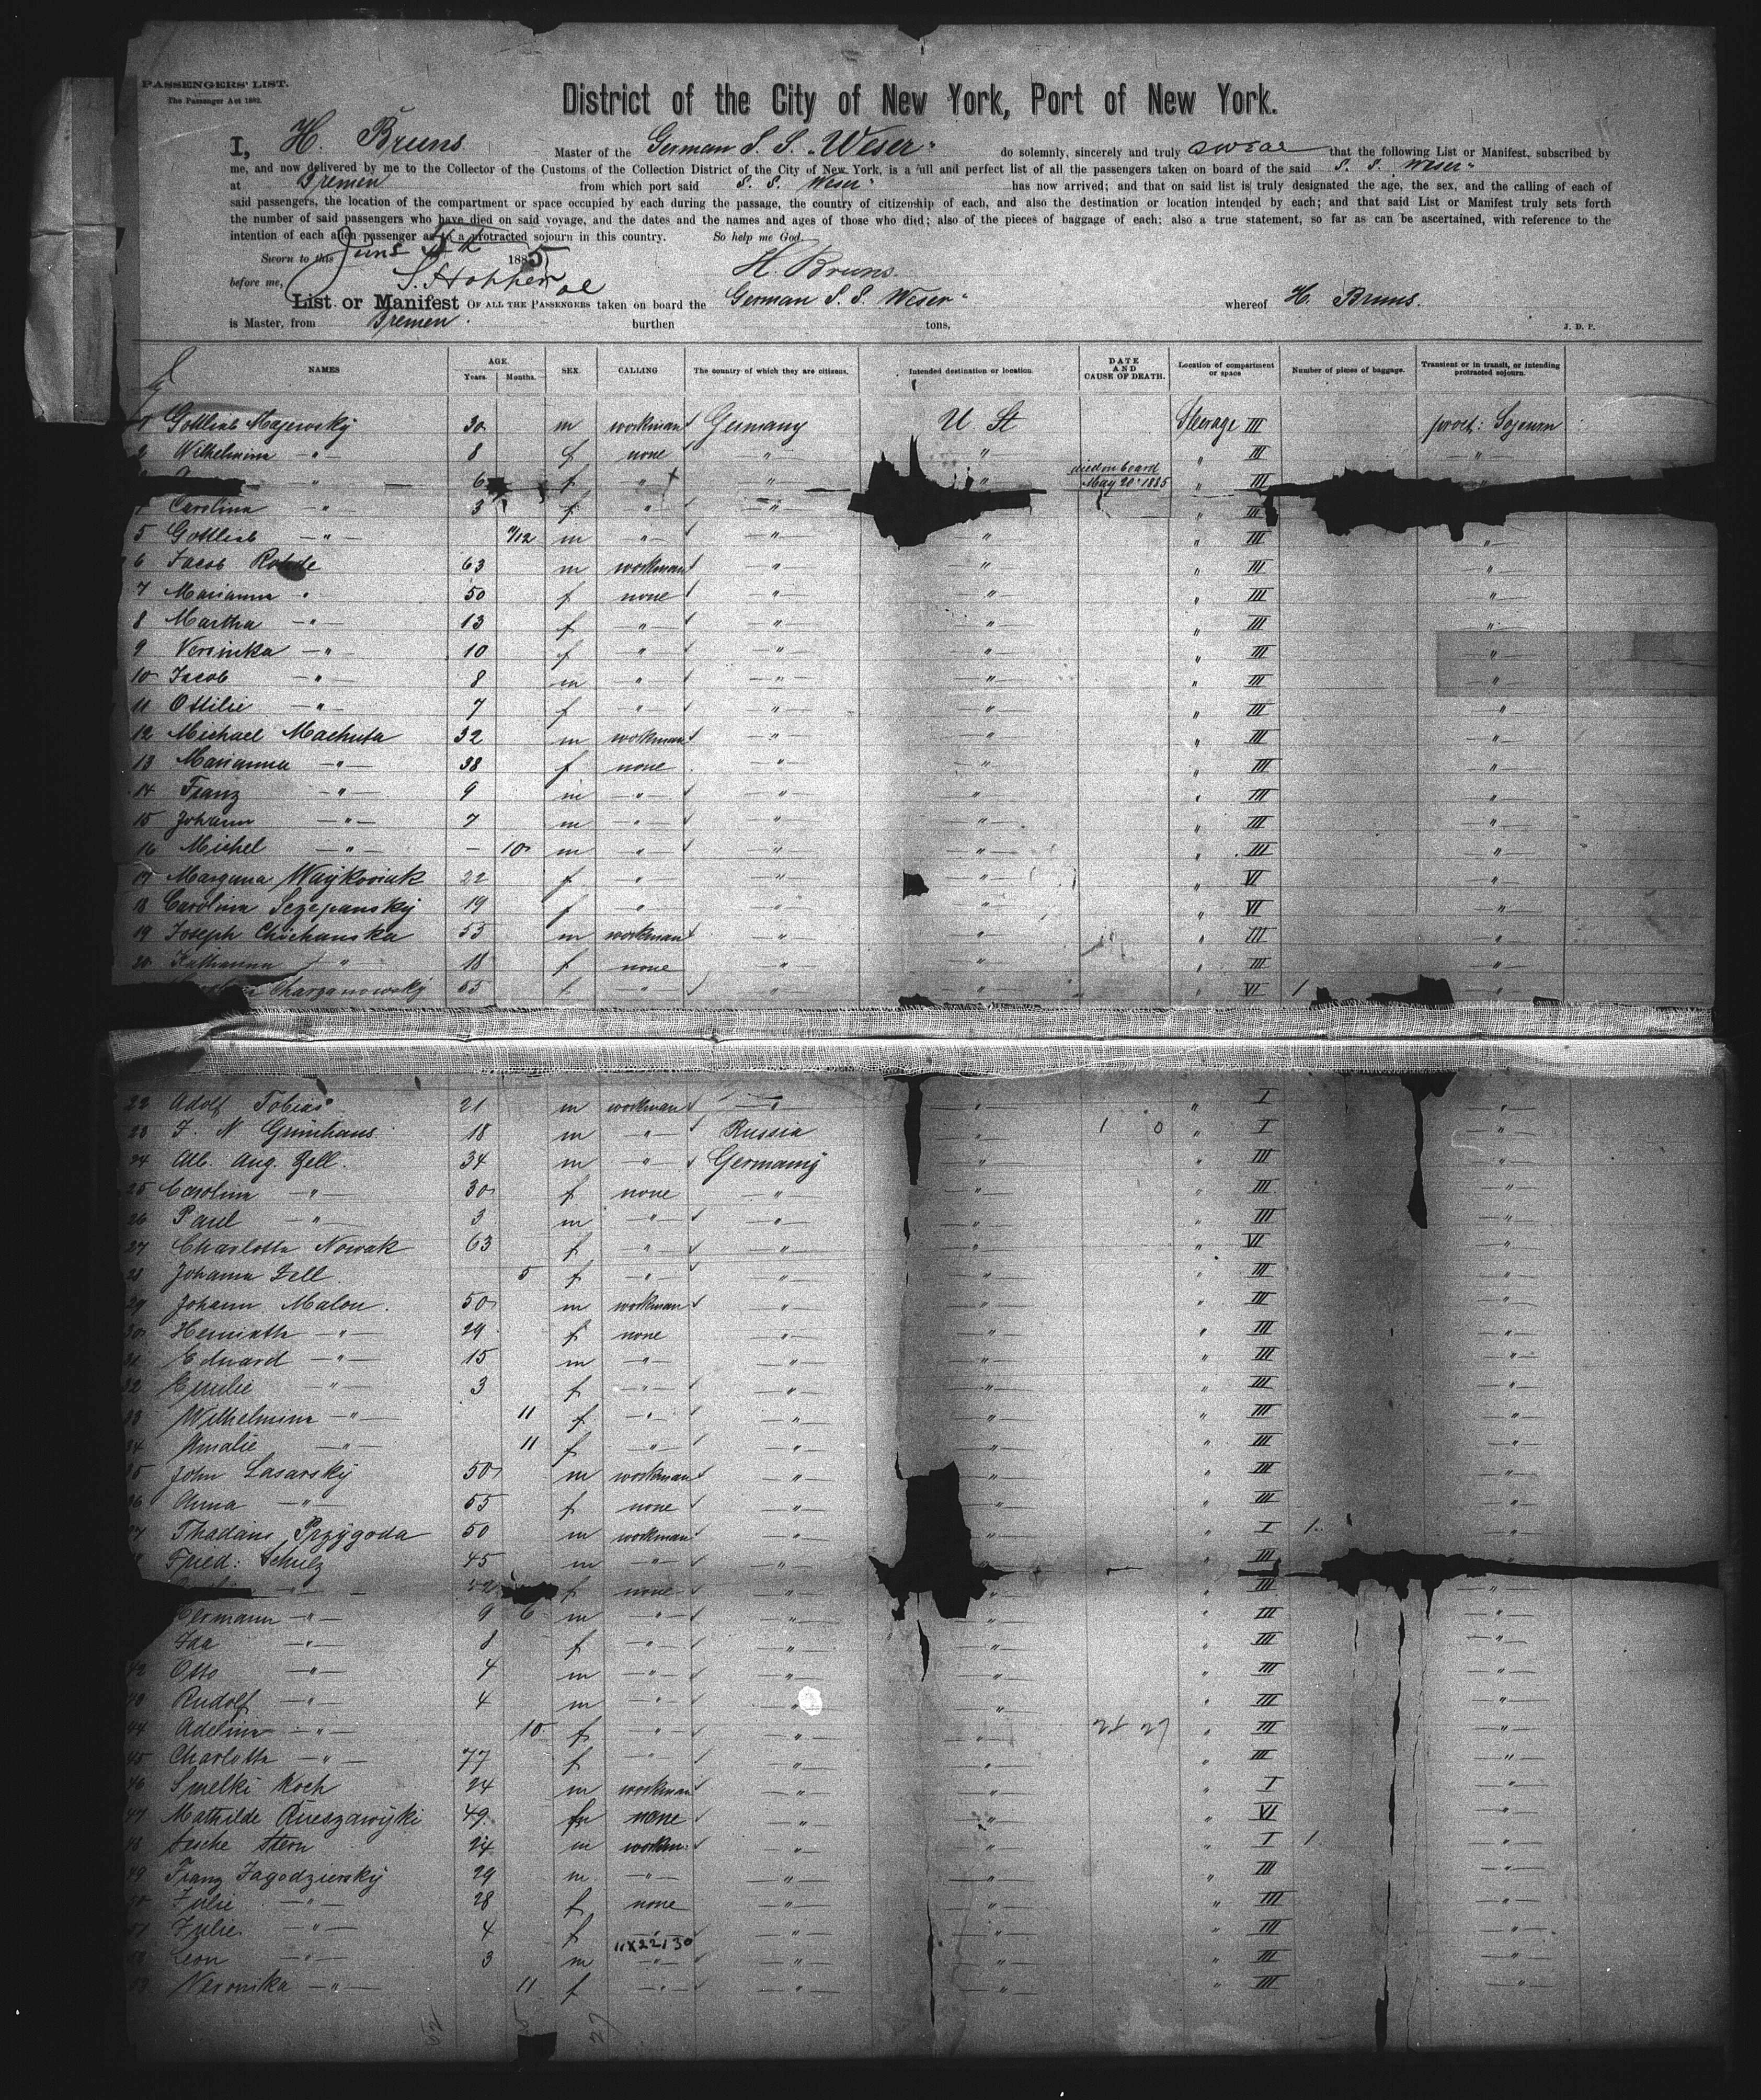 PASSENGERS' LIST.
The Passenger Act 1882.
District of the City of New York, Port of New York.
I, H. Bruns Master of the German S. S. „Weser" do solemnly, sincerely and truly swear that the following List or Manifest, subscribed by
me, and now delivered by me to the Collector of the Customs of the Collection District of the City of New York, is a full and perfect list of all the passengers taken on board of the said S. S. Weser"
at Bremen from which port said S. S. Weser" has now arrived; and that on said list is truly designated the age, the sex, and the calling of each of
said passengers, the location of the compartment or space occupied by each during the passage, the country of citizenship of each, and also the destination or location intended by each; and that said List or Manifest truly sets forth
the number of said passengers who have died on said voyage, and the dates and the names and ages of those who died; also of the pieces of baggage of each; also a true statement, so far as can be ascertained, with reference to the
intention of each alien passenger as to a protracted sojourn in this country. So help me God.
Sworn to this June 1885 H. Bruns.
before me,
List or Manifest OF ALL THE PASSENGERS taken on board the German S. S. Weser" whereof H. Bruns.
is Master, from Bremen. burthen tons. J. D. P.
NAMES AGE. Years. Months. SEX. CALLING The country of which they are citizens. Intended destination or location. DATE AND CAUSE OF DEATH. Location of compartment or space Number of pieces of baggage. Transient or in transit, or intending protracted sojourn.
1 Gottlieb Majewsky 30 m workman Germany U St Steerage III protr: Sojourn
2 Wilhelmina —"— 8 f none —"— " " III —"—
" 6 f " + —"— " died on board May 20' 1885 " III "
Carolina —"— 3 f " —"— " III
5 Gottlieb —"— 11/12 m —"— —"— " " III —"—
6 Jacob Rohde 63 m workman —"— —"— " III —"—
7 Marianna " 50 f none —"— —"— " III —"—
8 Martha —"— 13 f —"— —"— —"— " III —"—
9 Veronika —"— 10 f " —"— —"— " III —"—
10 Jacob —"— 8 m " —"— —"— " III —"—
11 Ottilie —"— 7 f —"— —"— —"— " III —"—
12 Michael Machuta 32 m workman —"— —"— " III —"—
13 Marianna —"— 38 f none —"— —"— " III —"—
14 Franz —"— 9 m —"— —"— —"— " III —"—
15 Johann —"— 7 m —"— —"— —"— " III —"—
16 Michel —"— – 10 m " —"— —"— " III —"—
17 22 f " —"— —"— " VI —"—
18 Carolina Szczepansky 19 f " —"— —"— " VI —"—
19 Joseph Chichanska 55 m workman —"— —"— " III —"—
20 Katharina " 18 f none —"— —"— " III —"—
Charzanowsky 65 f " " " VI 1 —"—
22 Adolf Tobias 21 m workman —"— " " I —"—
23 J. N. Grünhaus 18 m —"— Russia " 1 0 " I —"—
24 Alb. Aug. Zell. 34 m —"— Germany —"— " III —"—
25 Carolina —"— 30 f none —"— —"— " III —"—
26 Paul —"— 3 m —"— —"— —"— " III —"—
27 Charlotte Nowak 63 f " —"— —"— " VI —"—
28 Johanna Zell 5 f —"— —"— —"— " III —"—
29 Johann Malon. 50 m workman —"— —"— " III —"—
30 —"— 29 f none —"— —"— " III —"—
31 Eduard —"— 15 m —"— —"— —"— " III —"—
32 Emilie —"— 3 f —"— —"— —"— " III —"—
33 Wilhelmina —"— 11 f —"— —"— —"— " III —"—
34 Amalie —"— 11 f —"— —"— —"— " III —"—
35 John Lasarsky 50 m workman —"— —"— " III —"—
36 Anna —"— 55 f none —"— —"— " III —"—
37 Thadäus Przygoda 50 m workman —"— —"— " I 1. —"—
Fried: Schulz 45 m —"— —"— " " III "
—"— 52 f none —"— " " III —"—
Hermann —"— 9 6 m " —"— —"— " III —"—
Ida —"— 8 f —"— —"— —"— " III —"—
42 Otto —"— 4 m —"— —"— —"— " III —"—
43 Rudolf —"— 4 m " —"— —"— " III —"—
44 Adelina —"— 10 f —"— —"— —"— " III —"—
45 Charlotte —"— 77 f —"— —"— —"— " III —"—
46 Smelki Koch 24 m workman —"— —"— " I —"—
47 Mathilde 49. f none —"— —"— " VI —"—
48 Stern 24 m workm: —"— —"— " I 1 —"—
49 Franz Jagodziersky 29 m —"— —"— —"— " III —"—
50 Julie —"— 28 f none —"— —"— " III —"—
51 Julie —"— 4 f —"— —"— " III —"—
11X22130
52 Leon —"— 3 m —"— —"— —"— " III —"—
53 Veronika —"— 11 f —"— —"— —"— " III —"—